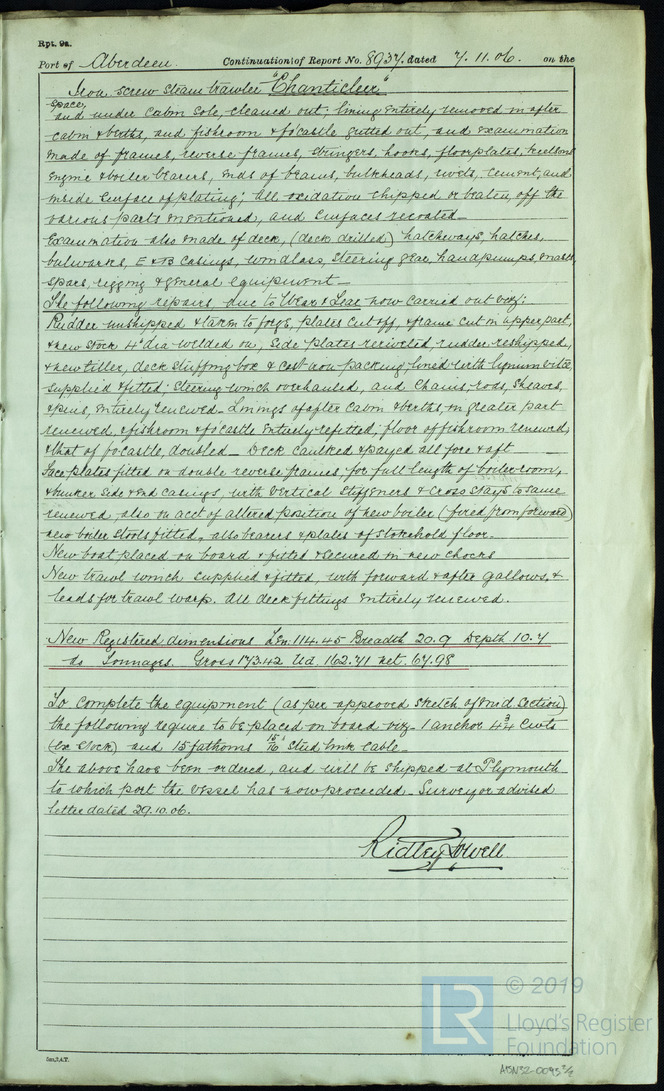 Rpt. 9a.
Port of Aberdeen Continuation of Report No. 8937. dated 7. 11. 06. on the
Iron screw steam trawler "Chanticleer"
space,
and under cabin sole, cleaned out; lining entirely removed in after
cabin & berths, and fishroom & focastle gutted out, and examination
made of frames, reverse frames, stringers, hooks, floorplates, keelsons
engine & boiler bearers, ends of beams, bulkheads, rivets, cement, and
inside surface of plating; all oxidation chipped or beaten, off the
various parts mentioned, and surfaces recoated_
Examination also made of deck, (deck drilled) hatchways, hatches,
bulwarks, E & B casings, windlass, steering gear, handpumps, masts
spars, rigging & general equipment_
The following repairs, due to Wear & Tear now carried out viz:
Rudder unshipped & taken to forge, plates cut off, & frame cut on upper part,
& new stock 4" dia welded on, side plates reriveted, rudder reshipped,
& new tiller, deck stuffing box & cast iron packing lined with lignum vitæ,
supplied & fitted; steering winch overhauled, and chains, rods, sheaves,
& pins, entirely renewed_ Linings of after cabin & berths, in greater part
renewed, & fishroom & focastle entirely refitted, floor of fishroom renewed,
& that of focastle, doubled_ Deck caulked & payed all fore & aft
Face plates fitted on double reverse frames, for full length of boiler room,
& bunker side & end casings, with vertical stiffeners & cross stays to same
renewed, also on acct of altered position of new boiler (fired from forward)
new boiler stools fitted, also bearers & plates of stokehold floor.
New boat placed on board & fitted & secured in new chocks
New trawl winch supplied & fitted, with forward & after gallows, &
leads for trawl warp. All deck fittings entirely renewed.
New Registered dimensions Len. 114.45 Breadth 20.9 Depth 10.7
do Tonnages. Gross 173.42 Ud. 162.71 net. 67.98
To complete the equipment (as per approved sketch of mid section)
the following require to be placed on board viz - 1 anchor 4¾ Cwts
(ex stock) and 15 fathoms 15/16" stud link cable_
The above have been ordered, and will be shipped at Plymouth
to which port the vessel has now proceeded_ Surveyor advised
letter dated 29.10.06.
Ridley
© 2019
LR
Lloyd's Register
Foundation